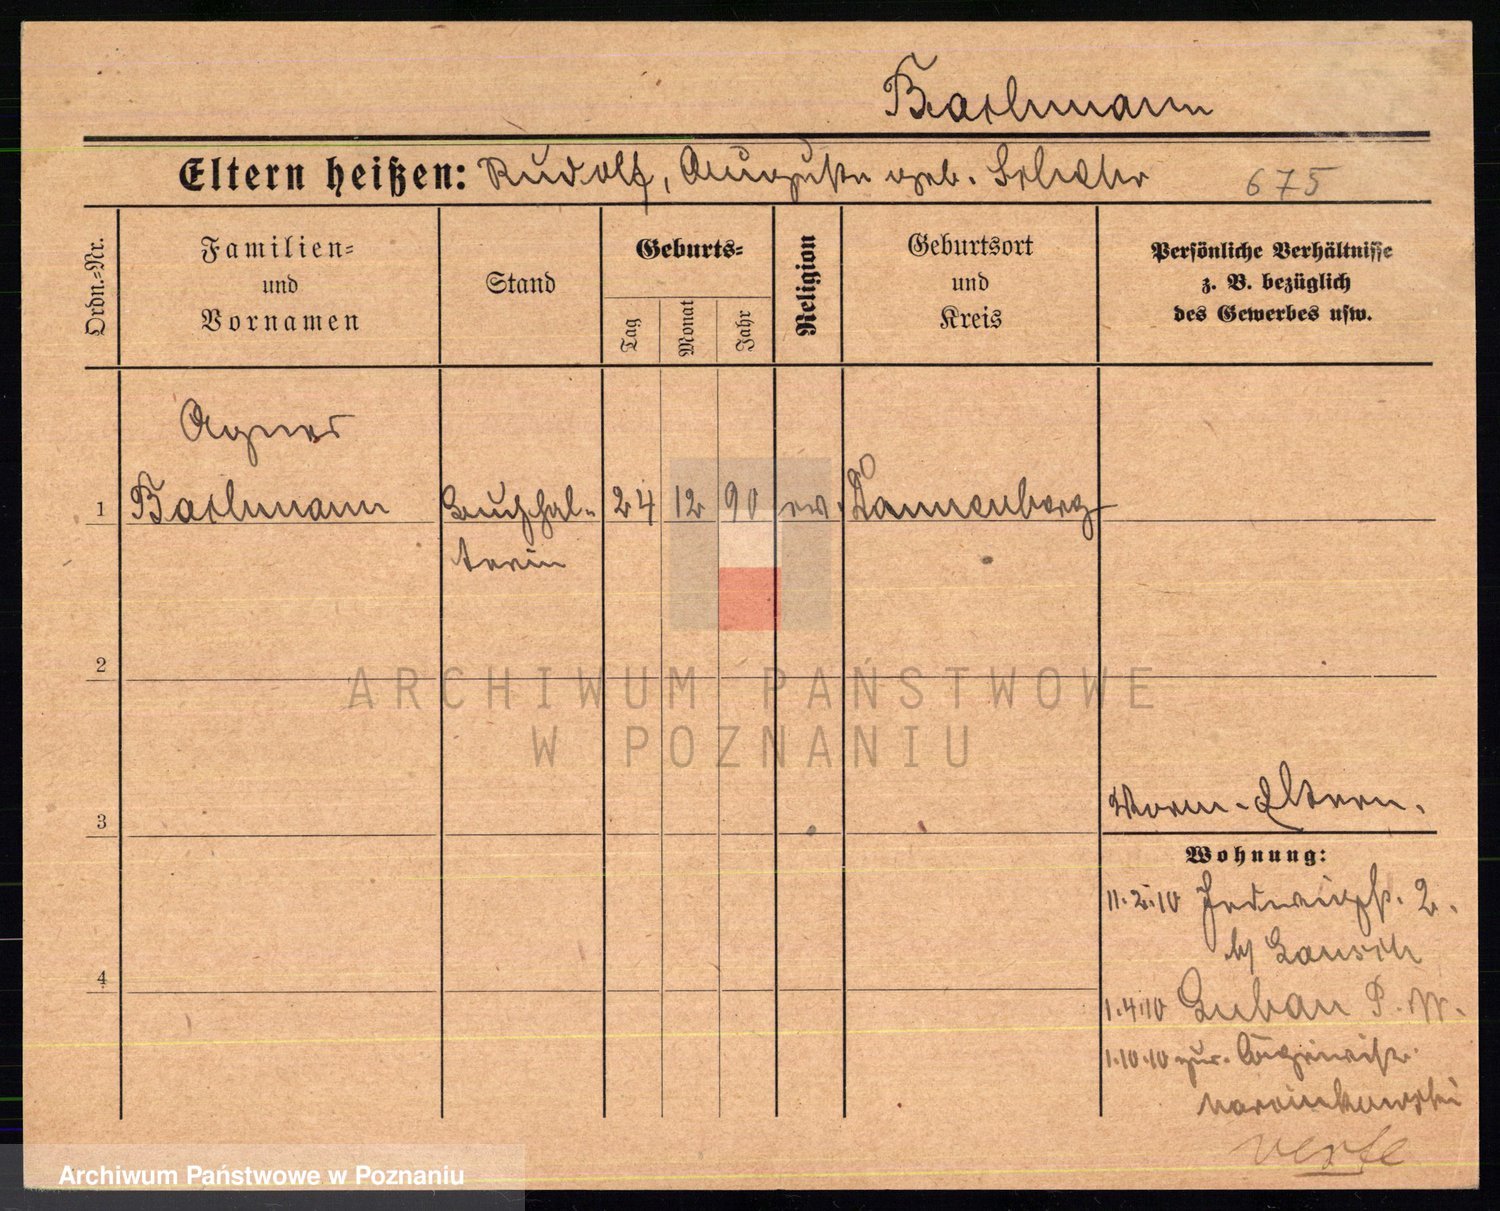 Bachmann
Eltern heißen: Rudolf, Auguste geb.
675
Ordn.-Nr.
Familien- und Vornamen
Stand
Geburts-
Tag
Monat
Jahr
Religion
Geburtsort und Kreis
Persönliche Verhältnisse
z. B. bezüglich
des Gewerbes usw.
Agnes
1 Bachmann Buchhal- 24 12 90 ev. Tannenberg
terin
2
3
4
Worm. Eltern.
Wohnung:
11.2.10 Hedwigstr. 2.
b/
1.4.10 Guban P. W.
1.10.10 zur.
verte
ARCHIWUM PAŃSTWOWE
W POZNANIU
Archiwum Państwowe w Poznaniu